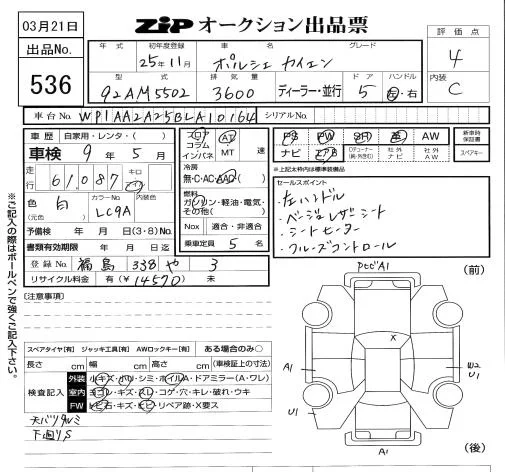 03月21日
ZiP オークション出品票
評価点
出品No.
536
年式
初年度登録
車名
グレード
25年11月
ポルシェ カイエン
4
型式
排気量
ドア
ハンドル
内装
92AM5502
3600
ディーラー・並行
5
左・右
C
車台No.
WP1AA2A25BLA10164
シリアルNo.
車歴
自家用・レンタ・( )
車検 9年 5月
走行
61,087
キロ
マイル
色
(元色)
白
カラーNo.
LC9A
内装色
予備検 年 月 日(3・8)No.
書類有効期限 年 月 日迄
登録No.
福島 338 や 3
リサイクル料金 有(¥14570) 未
フロア
コラム
インパネ
AT
MT
速
冷房
無・C・AC・AAC・( )
燃料
ガソリン・軽油・電気・
その他( )
Nox
適合・非適合
乗車定員 5 名
PS
PW
SR
革
AW
ナビ
エアB
TVチューナー
社外
ナビ
社外
AW
新車時
保証書
スペアキー
※上記太枠内は標準装備品
セールスポイント
・左ハンドル
・ベージュレザーシート
・シートヒーター
・クルーズコントロール
※ご記入の際はボールペンで強くご記入下さい。
[注意事項]
スペアタイヤ[有] ジャッキ工具[有] AWロックキー[有] ある場合のみ○
長さ cm 幅 cm 高さ cm (車検証上の寸法)
検査記入
外装
小キズ・小凹・シミ・ホイルA・ドアミラー(A・ワレ)
室内
ヨゴレ・キズ・スレ・コゲ・穴・キレ・破れ・ウキ
FW
トビ石・キズ・ヒビ・リペア跡・X要ス
天バリタルミ
下廻りS
(前)
A1
X
A1
W2
U1
U1
A1
(後)